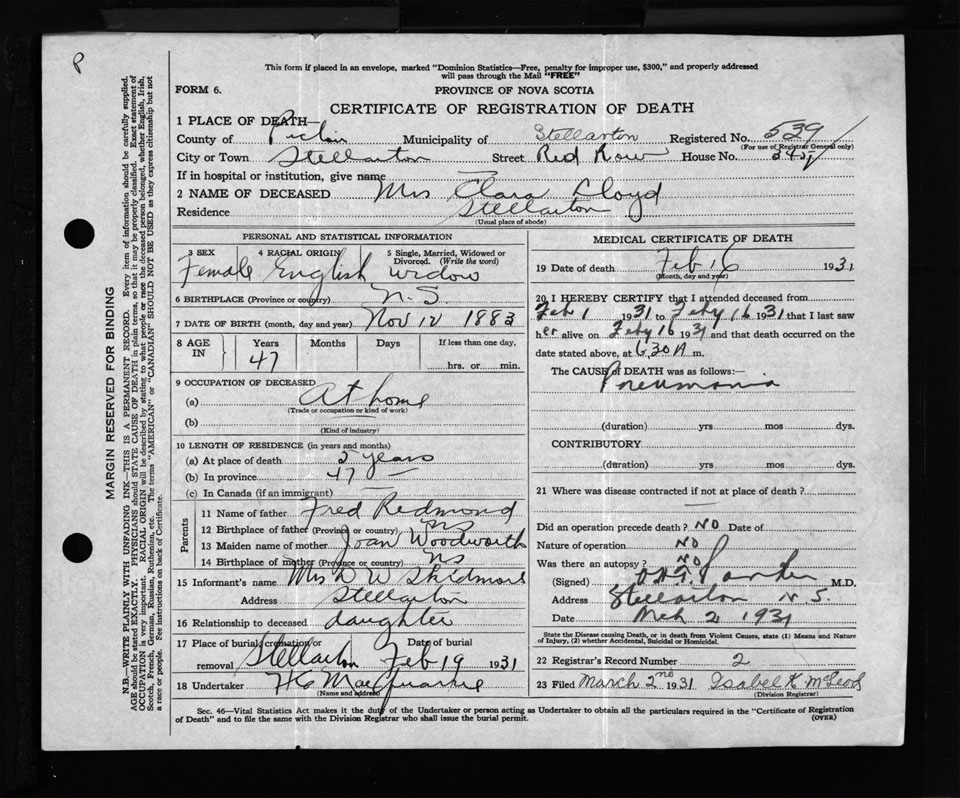 P
This form if placed in an envelope, marked "Dominion Statistics—Free, penalty for improper use, $300," and properly addressed
will pass through the Mail "FREE"
FORM 6.
PROVINCE OF NOVA SCOTIA
CERTIFICATE OF REGISTRATION OF DEATH
1 PLACE OF DEATH—
County of Pictou Municipality of Stellarton Registered No. 539
(For use of Registrar General only)
City or Town Stellarton Street Red Row House No.
If in hospital or institution, give name —
2 NAME OF DECEASED Mrs Clara Cloyd
Residence Stellarton
(Usual place of abode)
PERSONAL AND STATISTICAL INFORMATION
3 SEX 4 RACIAL ORIGIN 5 Single, Married, Widowed or Divorced. (Write the word)
Female English widow
6 BIRTHPLACE (Province or country) N.S.
7 DATE OF BIRTH (month, day and year) Nov 12 1883
8 AGE IN Years Months Days If less than one day,
47 hrs. or min.
9 OCCUPATION OF DECEASED
(a) At home
(Trade or occupation or kind of work)
(b)
(Kind of industry)
10 LENGTH OF RESIDENCE (in years and months)
(a) At place of death 5 years
(b) In province 47 —
(c) In Canada (if an immigrant) —
Parents
11 Name of father Fred Redmond
12 Birthplace of father (Province or country) NS
13 Maiden name of mother Joan Woodworth
14 Birthplace of mother (Province or country) NS
15 Informant's name Mrs D W Skidmore
Address Stellarton
16 Relationship to deceased daughter
17 Place of burial, cremation or removal Stellarton Date of burial Feb 19 1931
18 Undertaker
(Name and address)
MEDICAL CERTIFICATE OF DEATH
19 Date of death Feb 16 1931
(Month, day and year)
20 I HEREBY CERTIFY that I attended deceased from
Feb 1 1931 to Feby 16 1931 that I last saw
her alive on Feby 16 1931 and that death occurred on the
date stated above, at 6.30 A m.
The CAUSE of DEATH was as follows:—
Pneumonia
(duration) yrs mos dys.
CONTRIBUTORY
(duration) yrs mos dys.
21 Where was disease contracted if not at place of death?
—
Did an operation precede death? NO Date of
Nature of operation NO
Was there an autopsy? NO
(Signed) M.D.
Address Stellarton N.S.
Date Mch 2 1931
State the Disease causing Death, or in death from Violent Causes, state (1) Means and Nature
of Injury, (2) whether Accidental, Suicidal or Homicidal.
22 Registrar's Record Number 2
23 Filed March 2nd 1931 Isabel K McLeod
(Division Registrar)
Sec. 46—Vital Statistics Act makes it the duty of the Undertaker or person acting as Undertaker to obtain all the particulars required in the "Certificate of Registration
of Death" and to file the same with the Division Registrar who shall issue the burial permit.
(OVER)
MARGIN RESERVED FOR BINDING
N.B.—WRITE PLAINLY WITH UNFADING INK—THIS IS A PERMANENT RECORD. Every item of information should be carefully supplied.
AGE should be stated EXACTLY. PHYSICIANS should STATE CAUSE OF DEATH in plain terms, so that it may be properly classified. Exact statement of
OCCUPATION is very important. RACIAL ORIGIN will be described by stating to what people or race the deceased person belonged, whether English, Irish,
Scotch, French, German, Russian, Ruthenian, etc. The terms "AMERICAN" or "CANADIAN" SHOULD NOT BE USED as they express citizenship but not
a race or people. See instructions on back of Certificate.